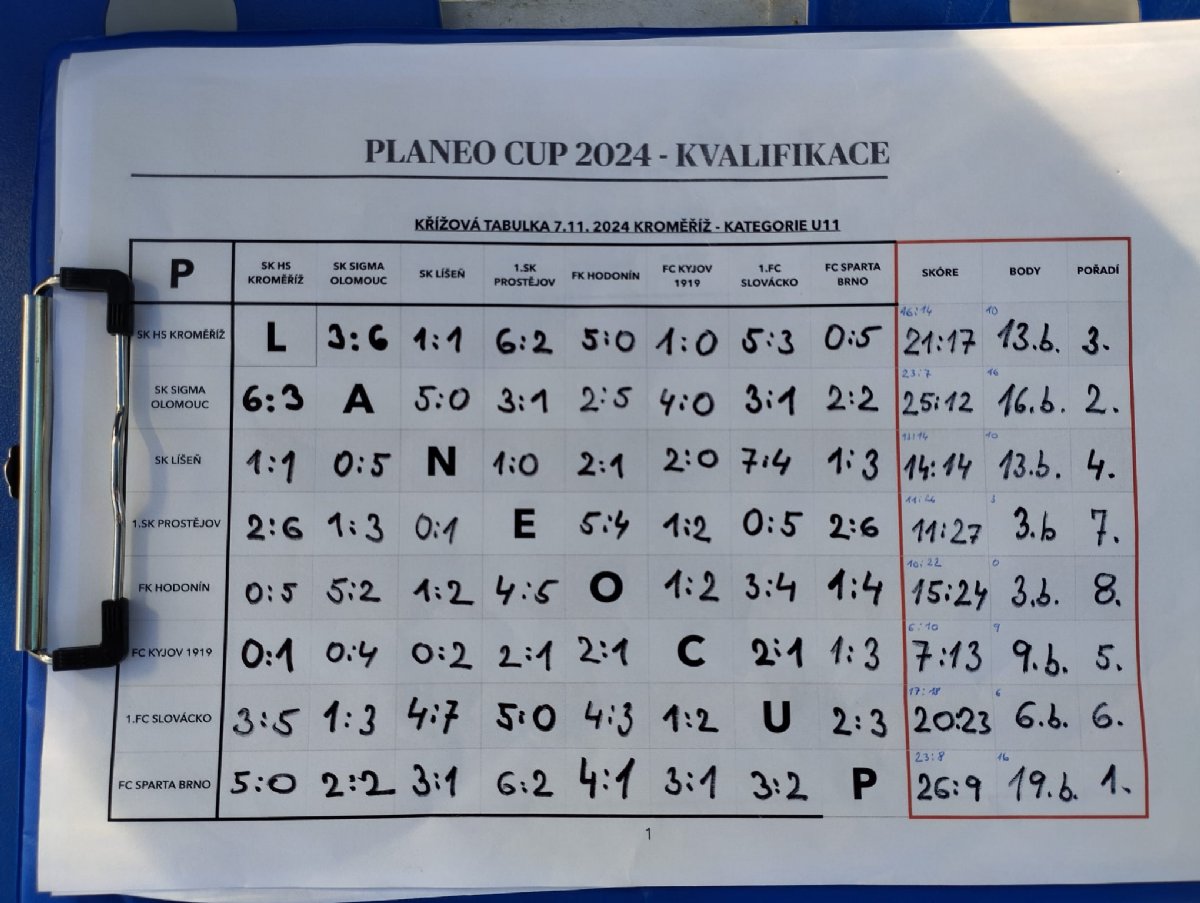 PLANEO CUP 2024 - KVALIFIKACE
KŘÍŽOVÁ TABULKA 7.11. 2024 KROMĚŘÍŽ - KATEGORIE U11
P SK HS KROMĚŘÍŽ SK SIGMA OLOMOUC SK LÍŠEŇ 1.SK PROSTĚJOV FK HODONÍN FC KYJOV 1919 1.FC SLOVÁCKO FC SPARTA BRNO SKÓRE BODY POŘADÍ
16:14 10
SK HS KROMĚŘÍŽ L 3:6 1:1 6:2 5:0 1:0 5:3 0:5 21:17 13.b. 3.
23:7 16
SK SIGMA OLOMOUC 6:3 A 5:0 3:1 2:5 4:0 3:1 2:2 25:12 16.b. 2.
10
SK LÍŠEŇ 1:1 0:5 N 1:0 2:1 2:0 7:4 1:3 14:14 13.b. 4.
3
1.SK PROSTĚJOV 2:6 1:3 0:1 E 5:4 1:2 0:5 2:6 11:27 3.b 7.
10:22 0
FK HODONÍN 0:5 5:2 1:2 4:5 O 1:2 3:4 1:4 15:24 3.b. 8.
6:10 9
FC KYJOV 1919 0:1 0:4 0:2 2:1 2:1 C 2:1 1:3 7:13 9.b. 5.
17:18 6
1.FC SLOVÁCKO 3:5 1:3 4:7 5:0 4:3 1:2 U 2:3 20:23 6.b. 6.
23:8 16
FC SPARTA BRNO 5:0 2:2 3:1 6:2 4:1 3:1 3:2 P 26:9 19.b. 1.
1